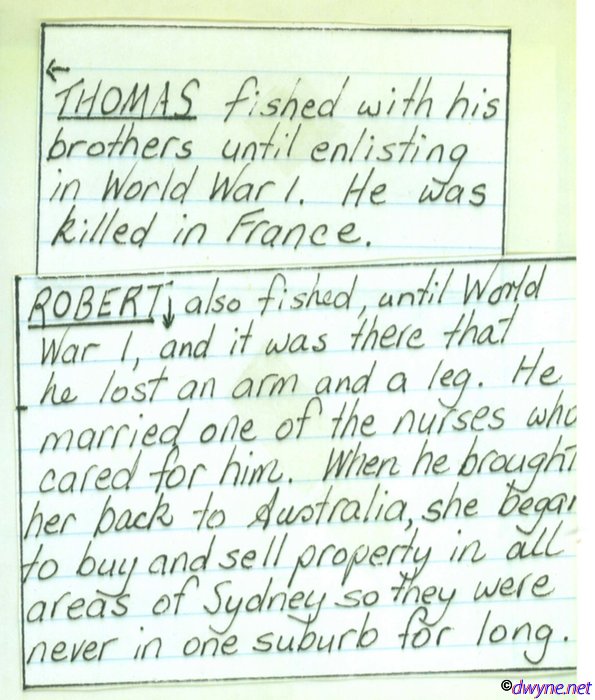 ←
THOMAS fished with his
brothers until enlisting
in World War 1. He was
killed in France.
ROBERT↓ also fished, until World
War 1, and it was there that
he lost an arm and a leg. He
married one of the nurses who
cared for him. When he brought
her back to Australia, she began
to buy and sell property in all
areas of Sydney so they were
never in one suburb for long.
©dwyne.net